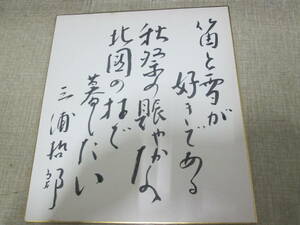 笛と雪が
好きである
秋祭の賑やかな
北国の村で
暮したい
三浦哲郎